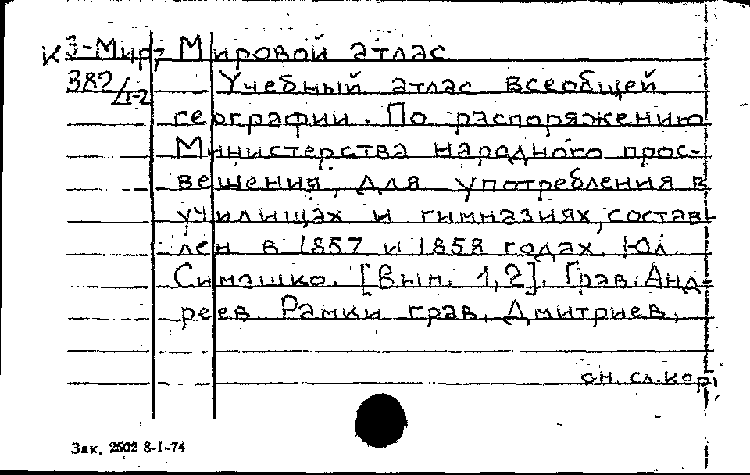 К 3-Мир, Мировой атлас
В82/1-2 Учебный атлас всеобщей
географии. По распоряжению
Министерства народного прос-
вещения, для употребления в
училищах и гимназиях, состав-
лен в 1857 и 1858 годах. Юл
Симашко. [Вып. 1,2]. Грав. Анд-
реев. Рамки грав. Дмитриев.
см. сл. кор.
Зак. 2502 8-I-74